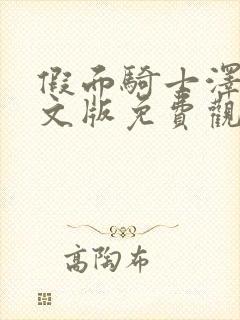 假面騎士澤
文版免費觀
高陶布